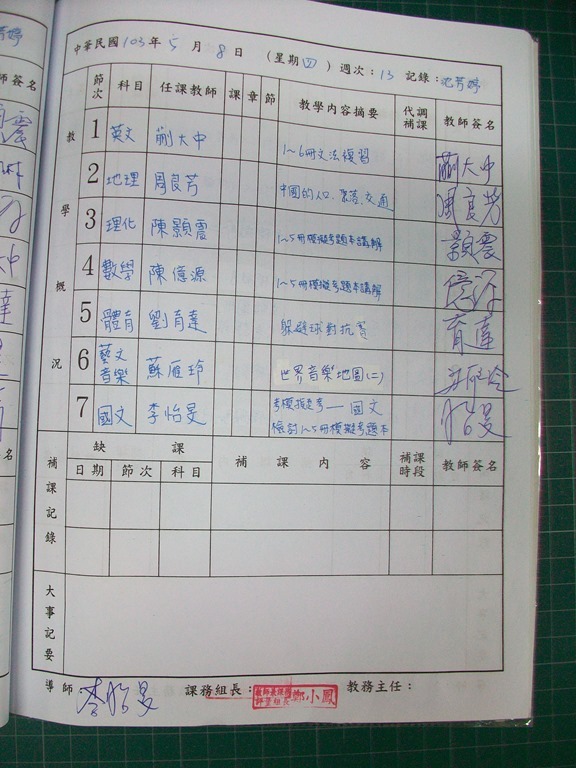 中華民國103年5月8日 (星期四) 週次:13 記錄:沈芳婷
教學概況
節次 科目 任課教師 課 章 節 教學內容摘要 代調補課 教師簽名
1 英文 蒯大中 1~6冊文法複習 蒯大中
2 地理 周良芳 中國的人口、聚落、交通 周良芳
3 理化 陳顥震 1~5冊模擬考題本講解 顥震
4 數學 陳億源 1~5冊模擬考題本講解 億源
5 體育 劉育達 躲避球對抗賽 育達
6 藝文音樂 蘇雁玲 世界音樂地圖(二)
7 國文 李怡旻 考模擬考——國文 怡旻
檢討1~5冊模擬考題本
補課記錄
缺課 補課內容 補課時段 教師簽名
日期 節次 科目
大事記要
導師 李怡旻 課務組長: 鄭小鳳 教務主任:
師簽名